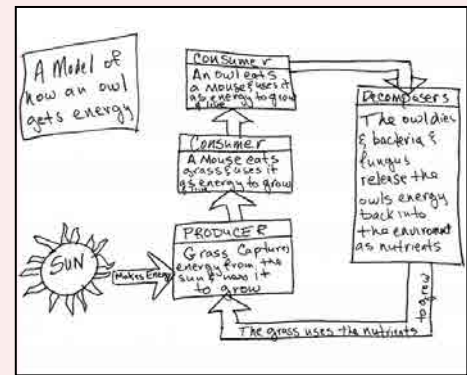 A Model of
how an owl
gets energy
Consumer
An owl eats
a mouse & uses it
as energy to grow
& live
Consumer
A Mouse eats
grass & uses it
as energy to grow
PRODUCER
Grass Captures
energy from the
sun & uses it
to grow
SUN
Makes Energy
Decomposers
The owl dies
& bacteria &
fungus
release the
owls energy
back into
the environment
as nutrients
The grass uses the nutrients
to grow